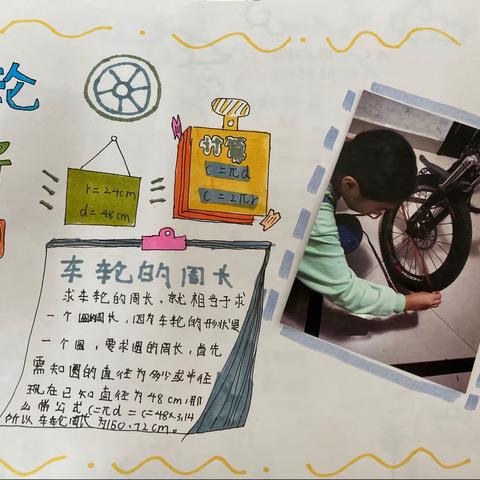 轮
r=24cm
d=48cm
计算
C=πd
C=2πr
车轮的周长
求车轮的周长，就相当于求
一个圆的周长，因为车轮的形状是
一个圆，要求圆的周长，首先
需知圆的直径为多少或半径
现在已知直径为48cm，那
么带公式C=πd=C=48×3.14
所以车轮周长为150.72cm。